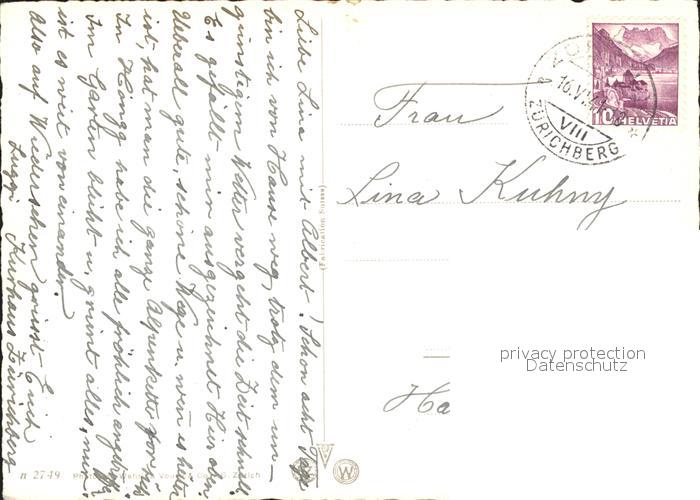 Liebe Lina mit Albert! Schon acht Tage
bin ich von Hause weg, trotz dem un-
günstigem Wetter vergeht die Zeit schnell.
Es gefällt mir ausgezeichnet hier oben.
Überall gute, schöne Wege u. wen es heiter
ist, hat man die ganze Alpenkette vor sich
In Höngg habe ich alle fröhlich angetroffen
Im Garten blüht u. grünt alles, nur
ist es weit voneinander.
Also auf Wiedersehen grüsst Euch
Kurhaus Zürichberg
(Fabrication Suisse)
Frau
Lina Kuhny
Ha
10 HELVETIA
16.VI.
VIII
ZÜRICHBERG
privacy protection
Datenschutz
n 2749
Zürich
W